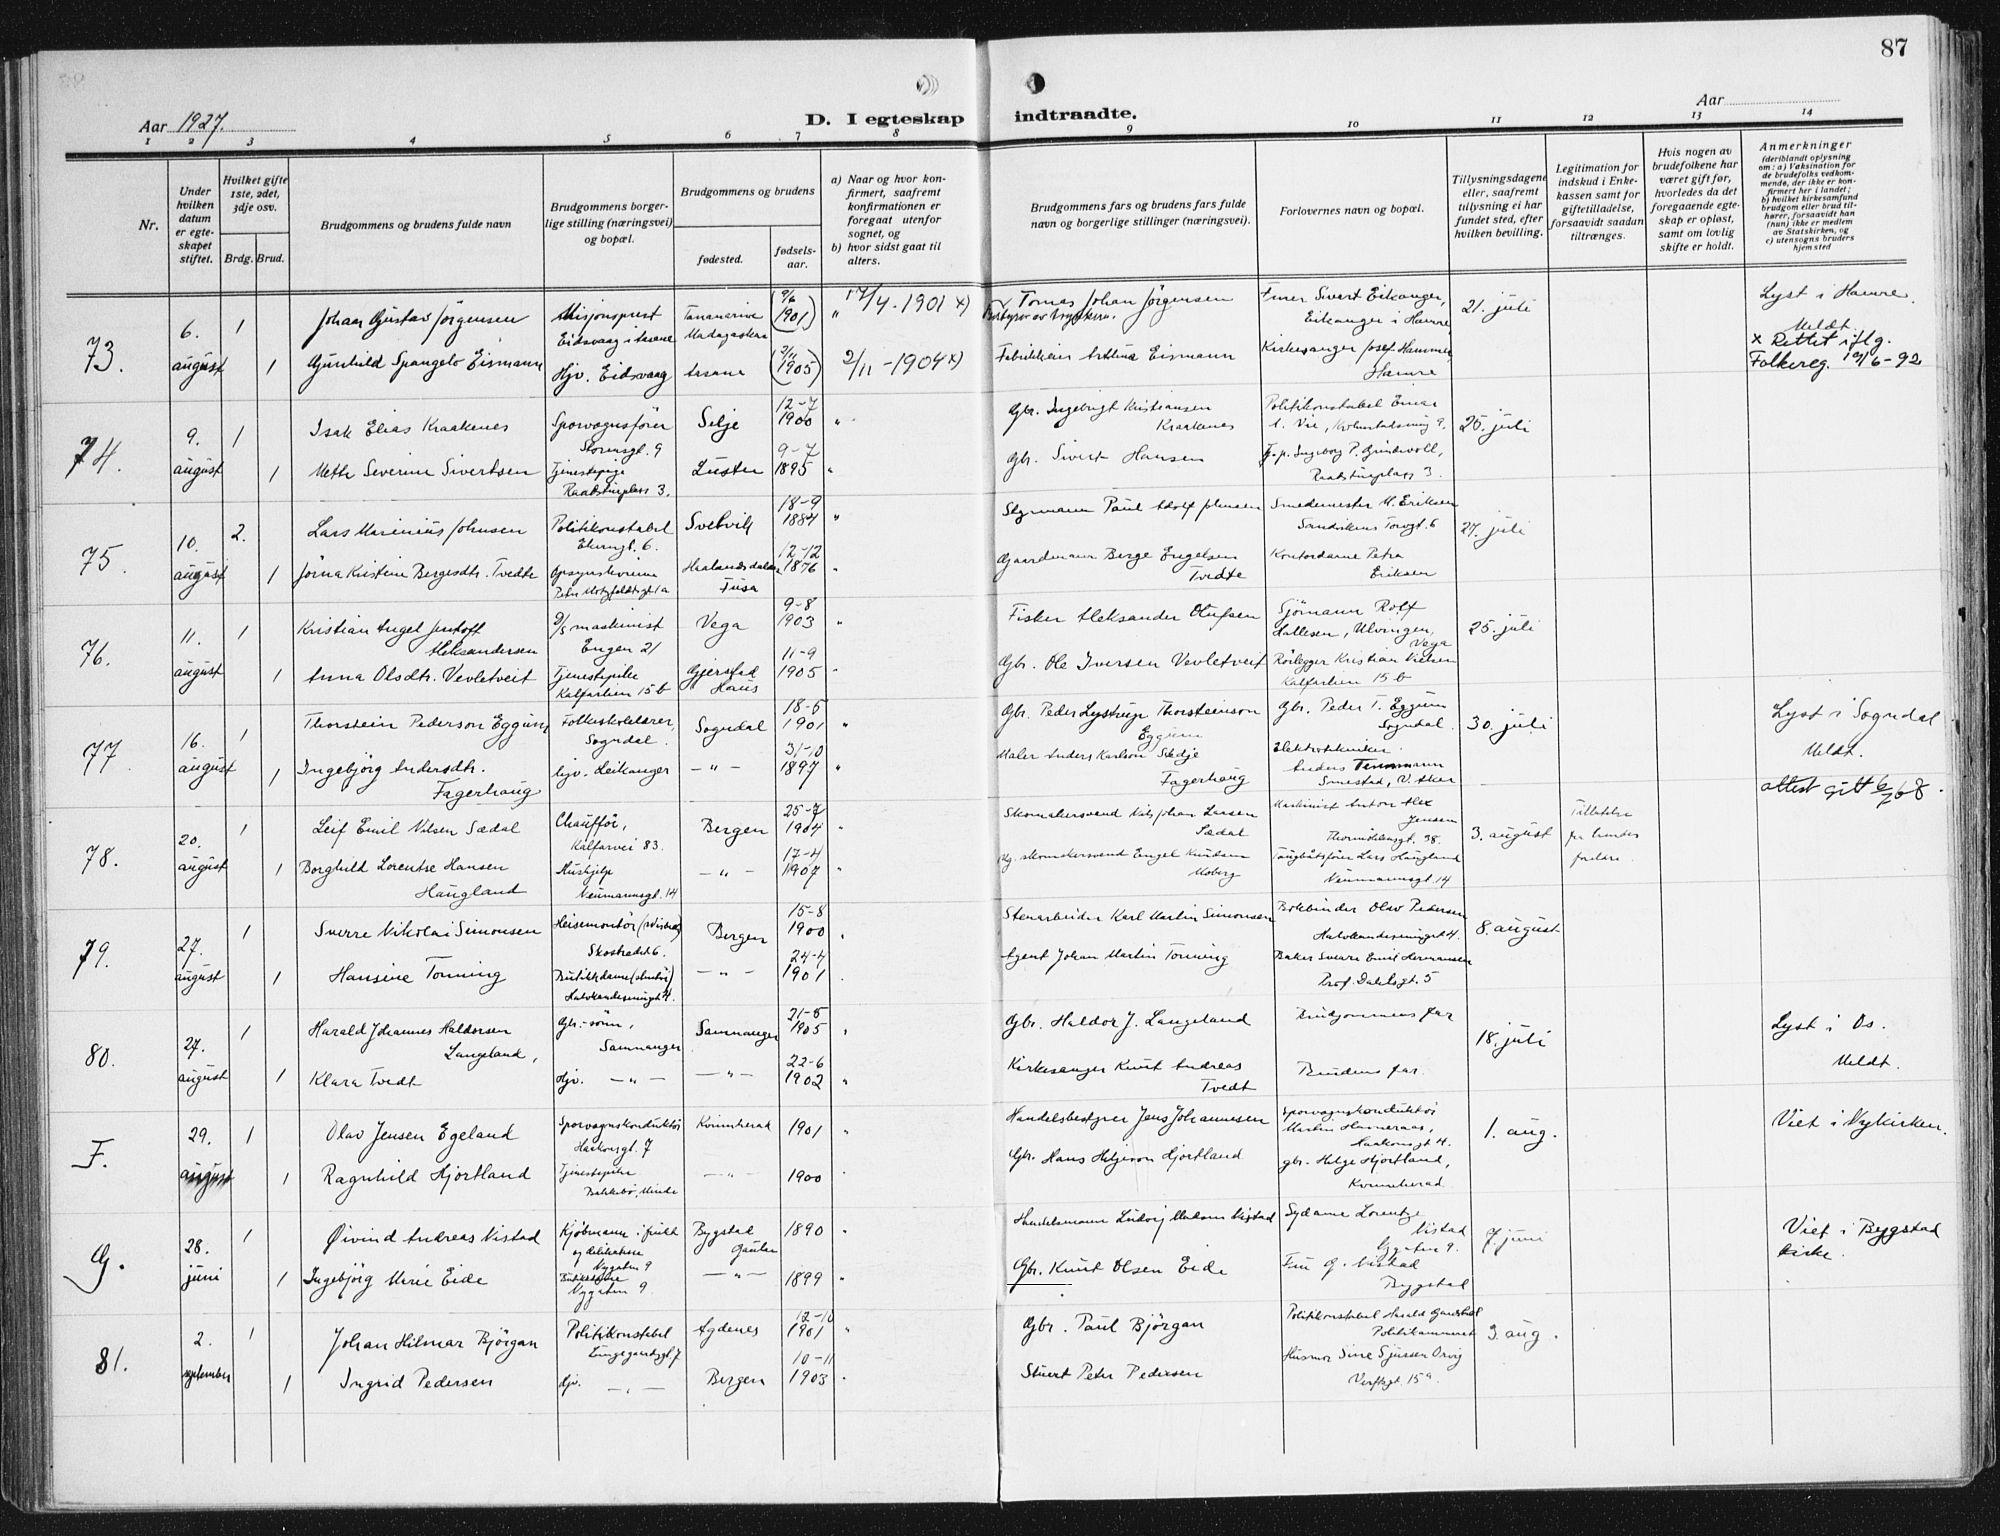 87
Aar 1927.
D. I egteskap indtraadte.
Aar
1 2 3 4 5 6 7 8 9 10 11 12 13 14
Nr.
Under hvilken datum er egteskapet stiftet.
Hvilket gifte 1ste, 2det, 3dje osv.
Brdg. Brud.
Brudgommens og brudens fulde navn
Brudgommens borgerlige stilling (næringsvei) og bopæl.
Brudgommens og brudens
fødested.
fødselsaar.
a) Naar og hvor konfirmert, saafremt konfirmationen er foregaat utenfor sognet, og
b) hvor sidst gaat til alters.
Brudgommens fars og brudens fars fulde navn og borgerlige stillinger (næringsvei).
Forlovernes navn og bopæl.
Tillysningsdagene eller, saafremt tillysning ei har fundet sted, efter hvilken bevilling.
Legitimation for indskud i Enkekassen samt for giftetilladelse, forsaavidt saadan tiltrænges.
Hvis nogen av brudefolkene har været gift før, hvorledes da det foregaaende egteskap er opløst, samt om lovlig skifte er holdt.
Anmerkninger
(deriblandt oplysning om: a) Vaksination for de brudefolks vedkommende, der ikke er konfirmert her i landet; b) hvilket kirkesamfund brudgom eller brud tilhører, forsaavidt han (hun) ikke er medlem av Statskirken, og c) utensogns bruders hjemsted
73. 6. august
1 Johan Gustav Jørgensen Misjonsprest Eidsvaag i Aasane Tananarive Madagaskar (9/6 1901) " 17/4-1901 x) Tomas Johan Jørgensen Bestyrer av trykkeri. Sivert Eikanger, Eikanger i Hamre 21. juli Lyst i Hamre. Meldt.
1 Gunhild Spangelo Eismann Hjv. Eidsvaag Aasane (2/11 1905) 2/11-1904 x) Eismann Kirkesanger Josef Hammer Hamre x Rettet iflg. Folkereg. 19/6-92
74. 9. august
1 Isak Elias Kraakenes Sporvognsfører Storemgl. 9 Selje 12-7 1900 " Gbr. Ingebrigt Kristiansen Kraakenes Politikonstabel Einar 25. juli
1 Mette Severine Sivertsen Tjenestepige Raadstuplass 3. Luster 9-7 1895 " Gbr. Sivert Hansen Ingeborg P. Grindvoll, Raadstuplass 3.
75. 10. august
2. Lars Marinius Johnsen Politikonstabel 6. Svelvik 18-9 1884 " Styrmann Paul Adolf Johnsen Smedemester M. Eriksen Sandvikens Torvgt. 6 27. juli
1 Jørna Kristine Bergesdtr. Tvedte Haalandsdalen Fusa 12-12 1876 " Gaardmann Berge Engelsen Tvedte Kontordame Petra Eriksen
76. 11. august
1 Kristian Angel Jentoft Aleksandersen D/S maskinist Engen 21 Vega 9-8 1903 " Fisker Aleksander Olufsen Sjømann Rolf Lallesen, Ulvingen, Vega 25. juli
1 Anna Olsdtr. Vevletveit Tjenestepike Kalfarlien 15 b Gjerstad Haus 11-9 1905 " Gbr. Ole Iversen Vevletveit Rørlegger Kristian Nielsen Kalfarlien 15 b
77 16. august
1 Thorstein Pederson Eggum Folkeskolelærer, Sogndal. Sogndal 18-5 1901 " Gbr. Peder Lystrup Thorsteinson Eggum Gbr. Peder T. Eggum Sogndal 30. juli Lyst i Sogndal Meldt.
1 Ingebjörg Andersdtr. Fagerhaug hjv. Leikanger - " - 31-10 1897 " Maler Anders Karlson Skedje Fagerhaug Elektrotekniker Anders Smestad, V. Aker attest gitt 6/7 68.
78. 20. august
1 Leif Emil Nilsen Sædal Chauffør, Kalfarvei 83. Bergen 25-7 1904 " Skomakersvend Nils Johan Larsen Sædal Maskinist Anton Alex Jensen Thormøhlensgt. 38. 3. august Tillatelse fra brudens foreldre.
1 Borghild Lorentse Hansen Haugland Hushjelp Neumannsgt. 14 - " - 17-4 1907 " skomakersvend Engel Knudsen Moberg Taugbåtsfører Lars Haugland Neumannsgt. 14
79. 27. august
1 Sverre Nikolai Simonsen Heisemontør Skostredet 6. Bergen 15-8 1900 " Stenarbeider Karl Martin Simonsen Bokbinder Olav Pedersen 8. august
1 Hansine Torming Butikkdame - " - 24-4 1901 . Agent Johan Martin Torming Baker Sverre Emil Hermansen Prof. Dahlsgt. 5
80. 27. august
1 Harald Johannes Haldorsen Langeland, Gbr.-sønn, Samnanger Samnanger 21-5 1905 " Gbr. Haldor J. Langeland Brudgommens far 18. juli Lyst i Os. Meldt.
1 Klara Tvedt Hjv. - " - - " - 22-6 1902 " Kirkesanger Knut Andreas Tvedt Brudens far.
F. 29. august
1 Olav Jensen Egeland Sporvognskonduktør Haakonsgt. 7 Kvinnherad 1901 " Handelsbestyrer Jens Johannesen Sporvognskonduktør Martin Haakonsgt 4. 1. aug. Viet i Nykirken.
1 Ragnhild Hjortland Tjenestepike Minde - " - 1900 " Gbr. Hans Helgeson Hjortland gbr. Helge Hjortland, Kvinnherad.
G. 28. juni
1 Øivind Andreas Vistad Kjøbmann i frukt og delikatesse Nygaten 9 Bygstad Gaular 1890 " Handelsmann Ludvig Vistad Sydame Lorentze Vistad Nygaten 9. 7. juni Viet i Bygstad kirke.
1 Ingebjørg Marie Eide Nygaten 9. - " - 1899 " Gbr. Knut Olsen Eide Fru G. Vistad Bygstad
81. 2. september
1 Johan Hilmar Bjørgan Politikonstabel Lungegaardsgt 7 Agdenes 12-10 1901 " Gbr. Paul Bjørgan Politikonstabel Harald Politikammeret 3. aug.
1 Ingrid Pedersen Hjv. - " - Bergen 10-11 1903 . Stuert Peter Pedersen Husmor Sine Sjursen Verftsgt. 15a.